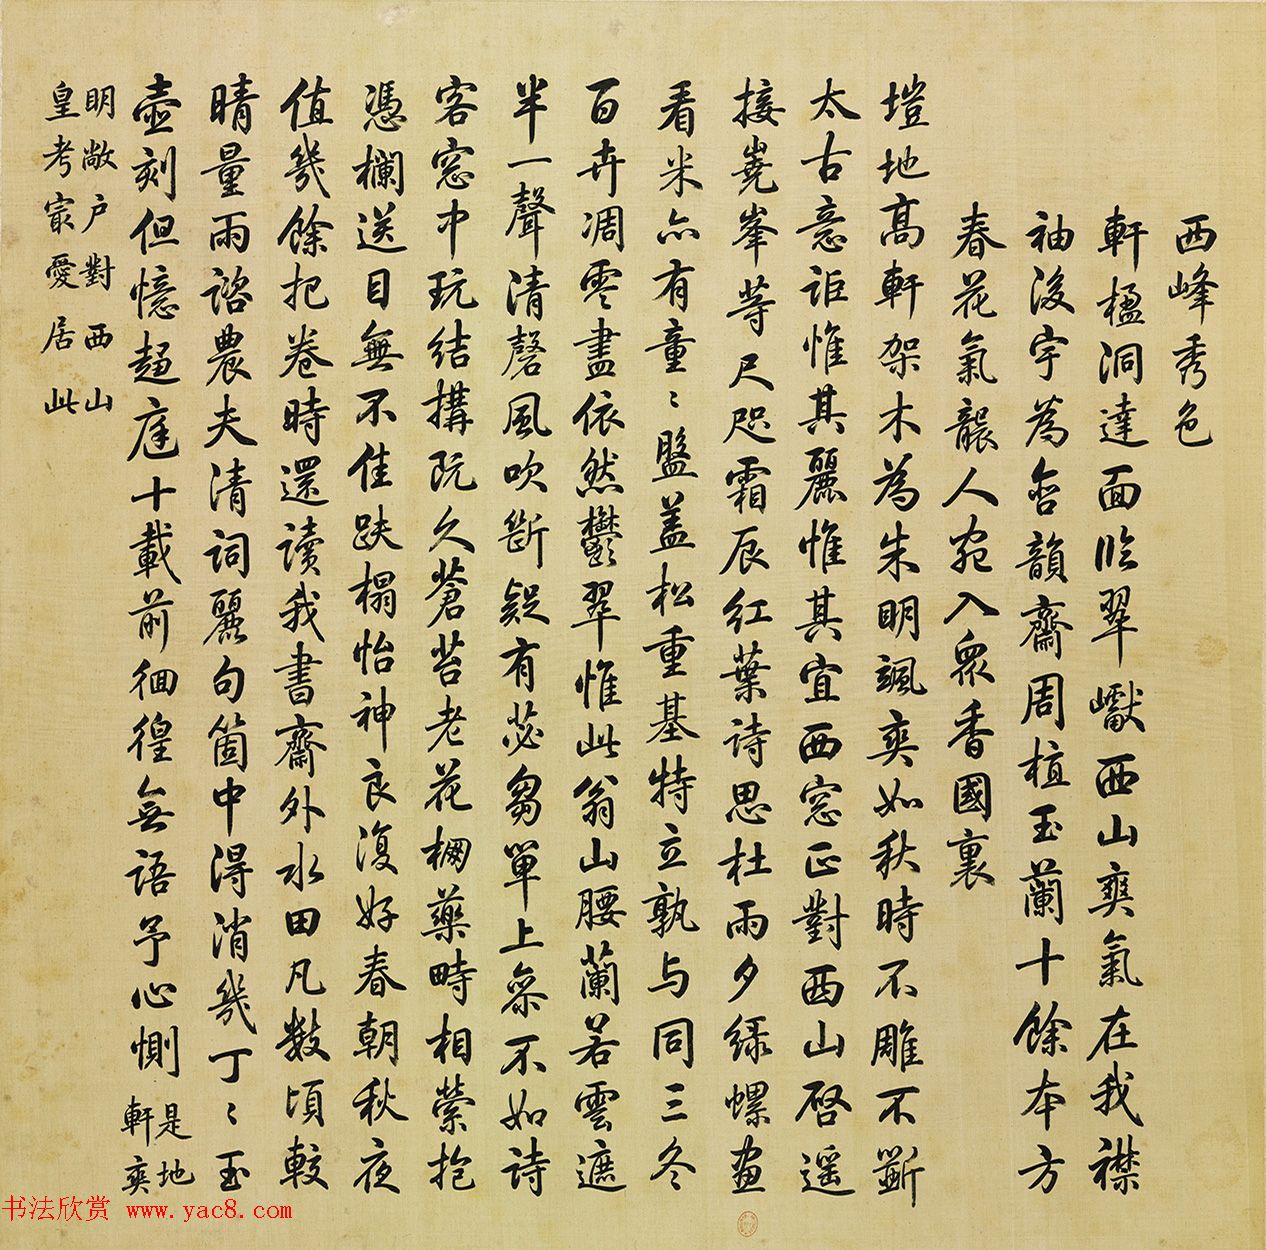 西峰秀色
軒楹洞達面臨翠巘西山爽氣在我襟
袖後宇為含韻齋周植玉蘭十餘本方
春花氣襲人宛入眾香國裏
塏地高軒架木為朱明颯爽如秋時不雕不斵
太古意詎惟其麗惟其宜西窓正對西山啓遥
接嶤峯等尺咫霜辰紅葉詩思杜雨夕綠螺畫
看米亦有童〻盤盖松重基特立孰与同三冬
百卉凋零盡依然鬱翠惟此翁山腰蘭若雲遮
半一聲清磬風吹斷疑有苾芻單上叅不如詩
客窓中玩結搆既久蒼苔老花欄藥畤相縈抱
憑欄送目無不佳趺榻怡神良復好春朝秋夜
值幾餘把卷時還讀我書齋外水田凡數頃較
晴量雨諮農夫清詞麗句箇中得消幾丁〻玉
壺刻但憶趍庭十載前徊徨無語予心惻
是地
軒爽
明敞户對西山
皇考㝡愛居此
书法欣赏 www.yac8.com